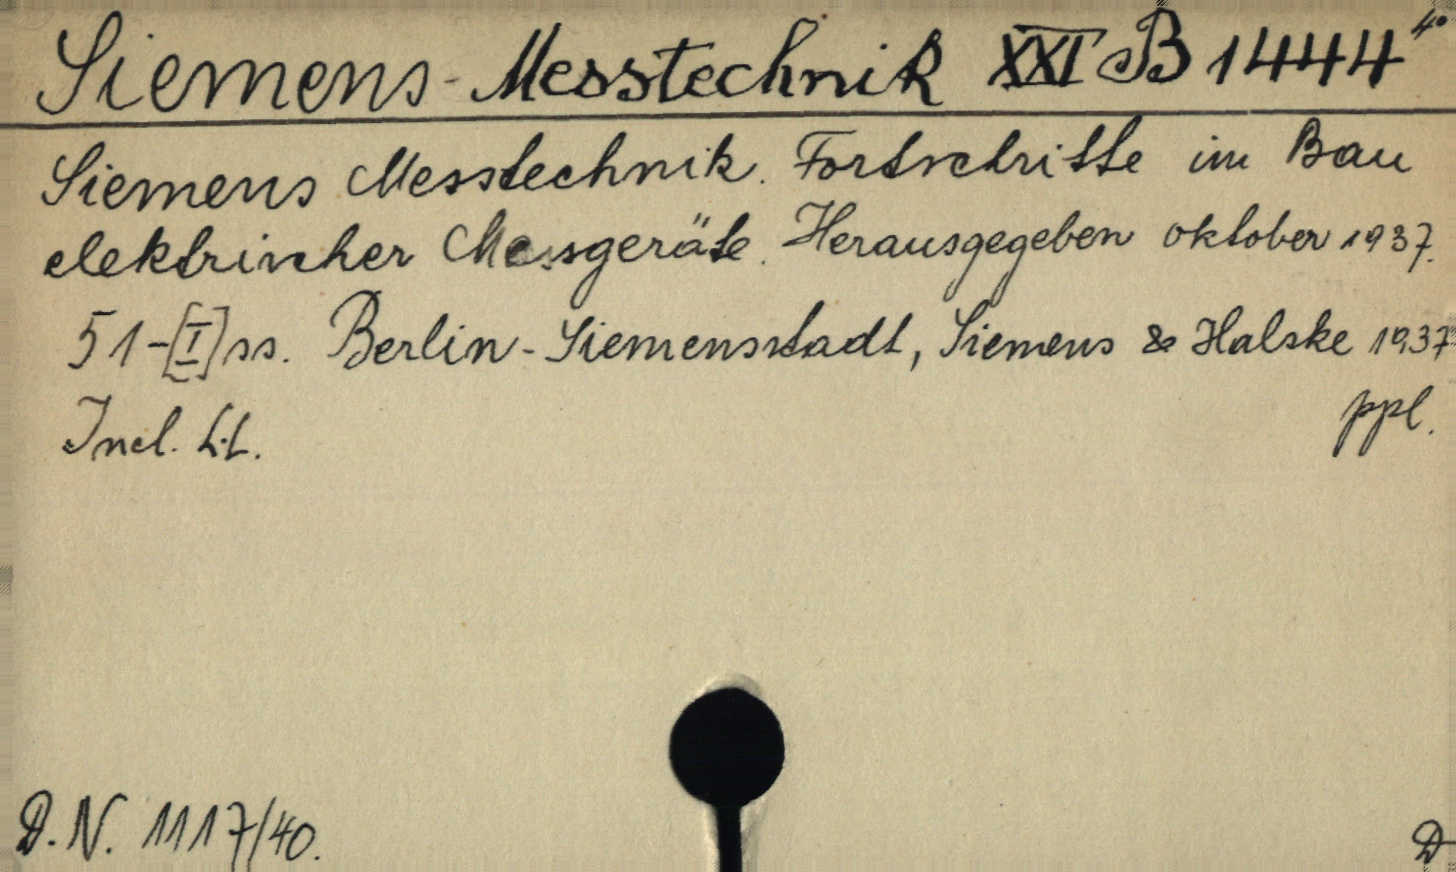 Siemens-Messtechnik XXI B 1444 4°
Siemens Messtechnik. Fortschritte im Bau
elektrischer Messgeräte. Herausgegeben oktober 1937.
51-[I] ss. Berlin-Siemensstadt, Siemens & Halske 1937
Incl. Lit. ppl.
D.N. 1117/40. D